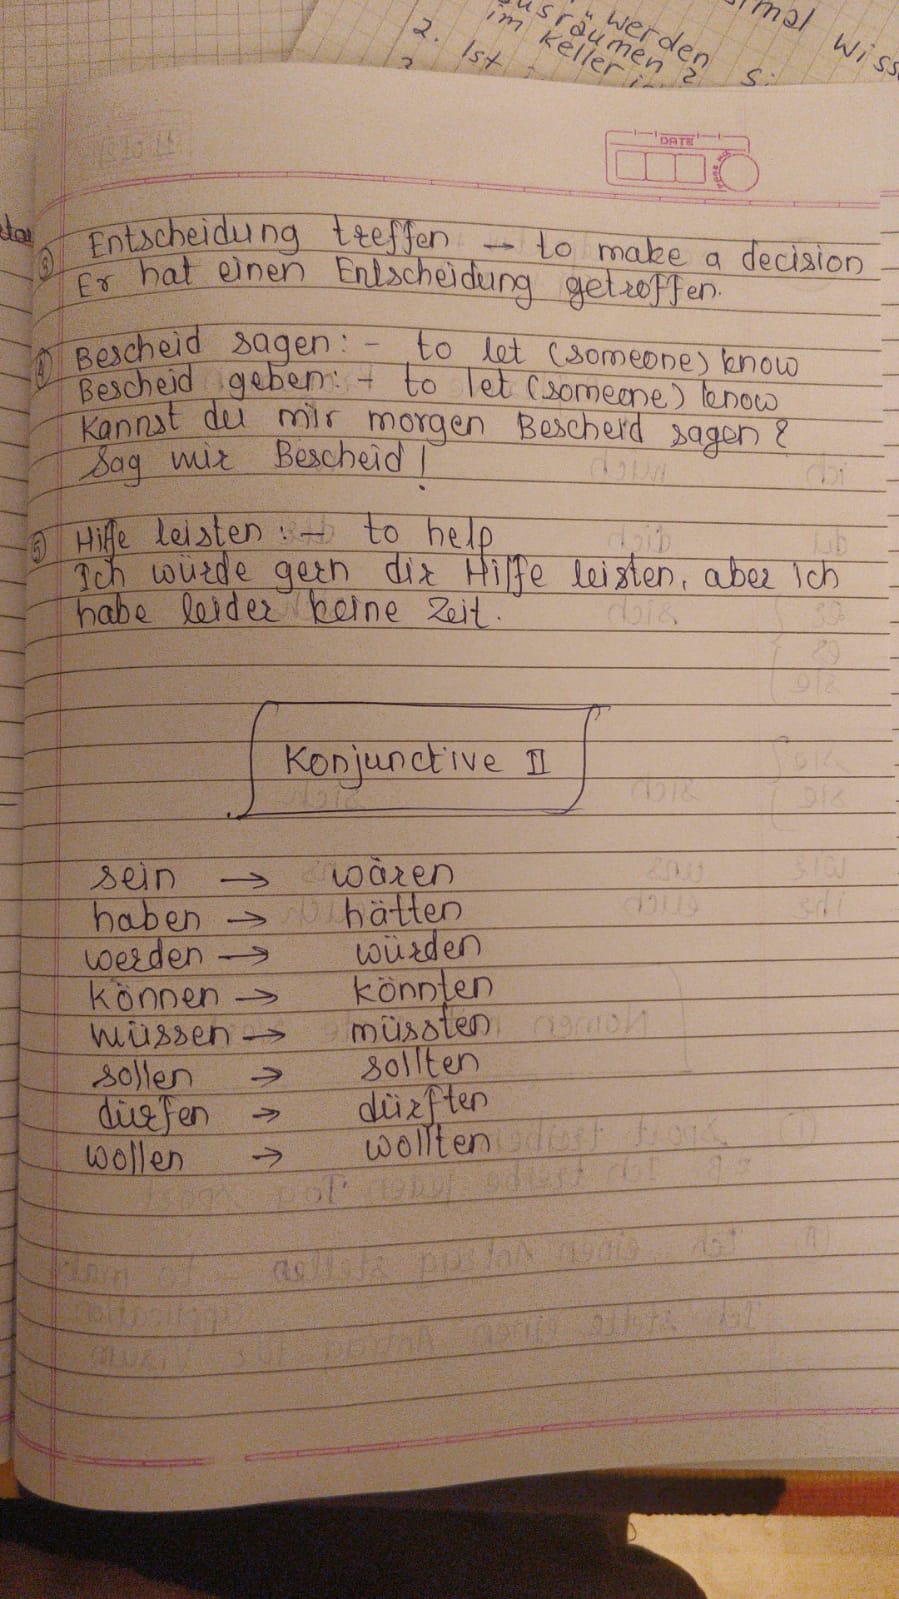 werden
ausräumen?
im Keller
2. Ist
DATE
③ Entscheidung treffen → to make a decision
Er hat einen Entscheidung getroffen.
④ Bescheid sagen: - to let (someone) know
Bescheid geben: - to let (someone) know
Kannst du mir morgen Bescheid sagen?
Sag mir Bescheid!
⑤ Hilfe leisten: → to help
Ich würde gern dir Hilfe leisten, aber ich
habe leider keine Zeit.
Konjunctive II
sein → wären
haben → hätten
werden → würden
können → könnten
müssen → müssten
sollen → sollten
dürfen → dürften
wollen → wollten